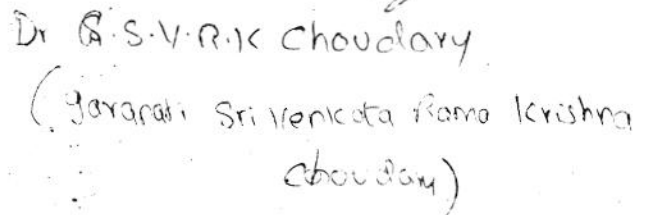 Dr G.S.V.R.K Choudary
(Garapati Sri Venkata Rama Krishna
Choudary)